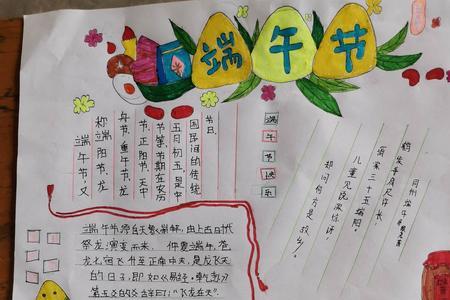 端午节
端午节又
称端阳节、龙
舟节、重午节、龙
节、正阳节、天中
节等,节期在农历
五月初五,是中
国民间的传统
节日
端
午
节
同州端午
鹤发垂肩尺许长,
离家三十五端阳。
儿童见说深惊讶,
却问何方是故乡。
端午节源自天象崇拜,由上古时代
祭龙演变而来。仲夏端午,苍
龙七宿飞升至正南中天,是龙飞天
的日子,即如《易经·乾卦》
第五爻的爻辞曰:"飞龙在天"。